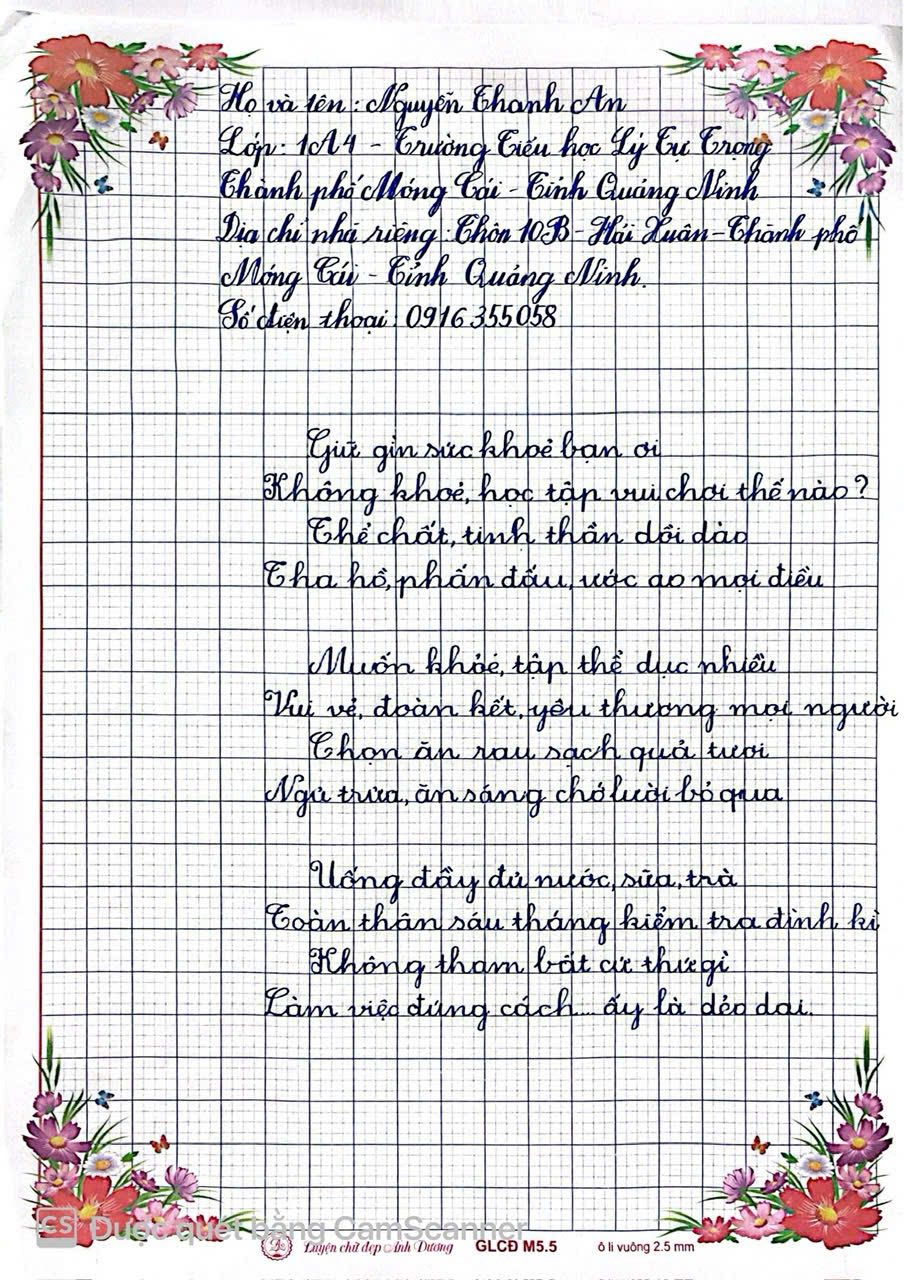 Họ và tên: Nguyễn Thanh An
Lớp: 1A4 - Trường Tiểu học Lý Tự Trọng
Thành phố Móng Cái - Tỉnh Quảng Ninh
Địa chỉ nhà riêng: Thôn 10B - Hải Xuân - Thành phố
Móng Cái - Tỉnh Quảng Ninh.
Số điện thoại: 0916355058
Giữ gìn sức khoẻ bạn ơi
Không khoẻ, học tập vui chơi thế nào?
Thể chất, tinh thần dồi dào
Tha hồ, phấn đấu, ước ao mọi điều
Muốn khỏe, tập thể dục nhiều
Vui vẻ, đoàn kết, yêu thương mọi người
Chọn ăn rau sạch quả tươi
Ngủ trưa, ăn sáng chớ lười bỏ qua
Uống đầy đủ nước, sữa, trà
Toàn thân sáu tháng kiểm tra định kì
Không tham bất cứ thứ gì
Làm việc đúng cách... ấy là dẻo dai.
CS Được quét bằng CamScanner
Luyện chữ đẹp Ánh Dương GLCĐ M5.5 ô li vuông 2.5 mm